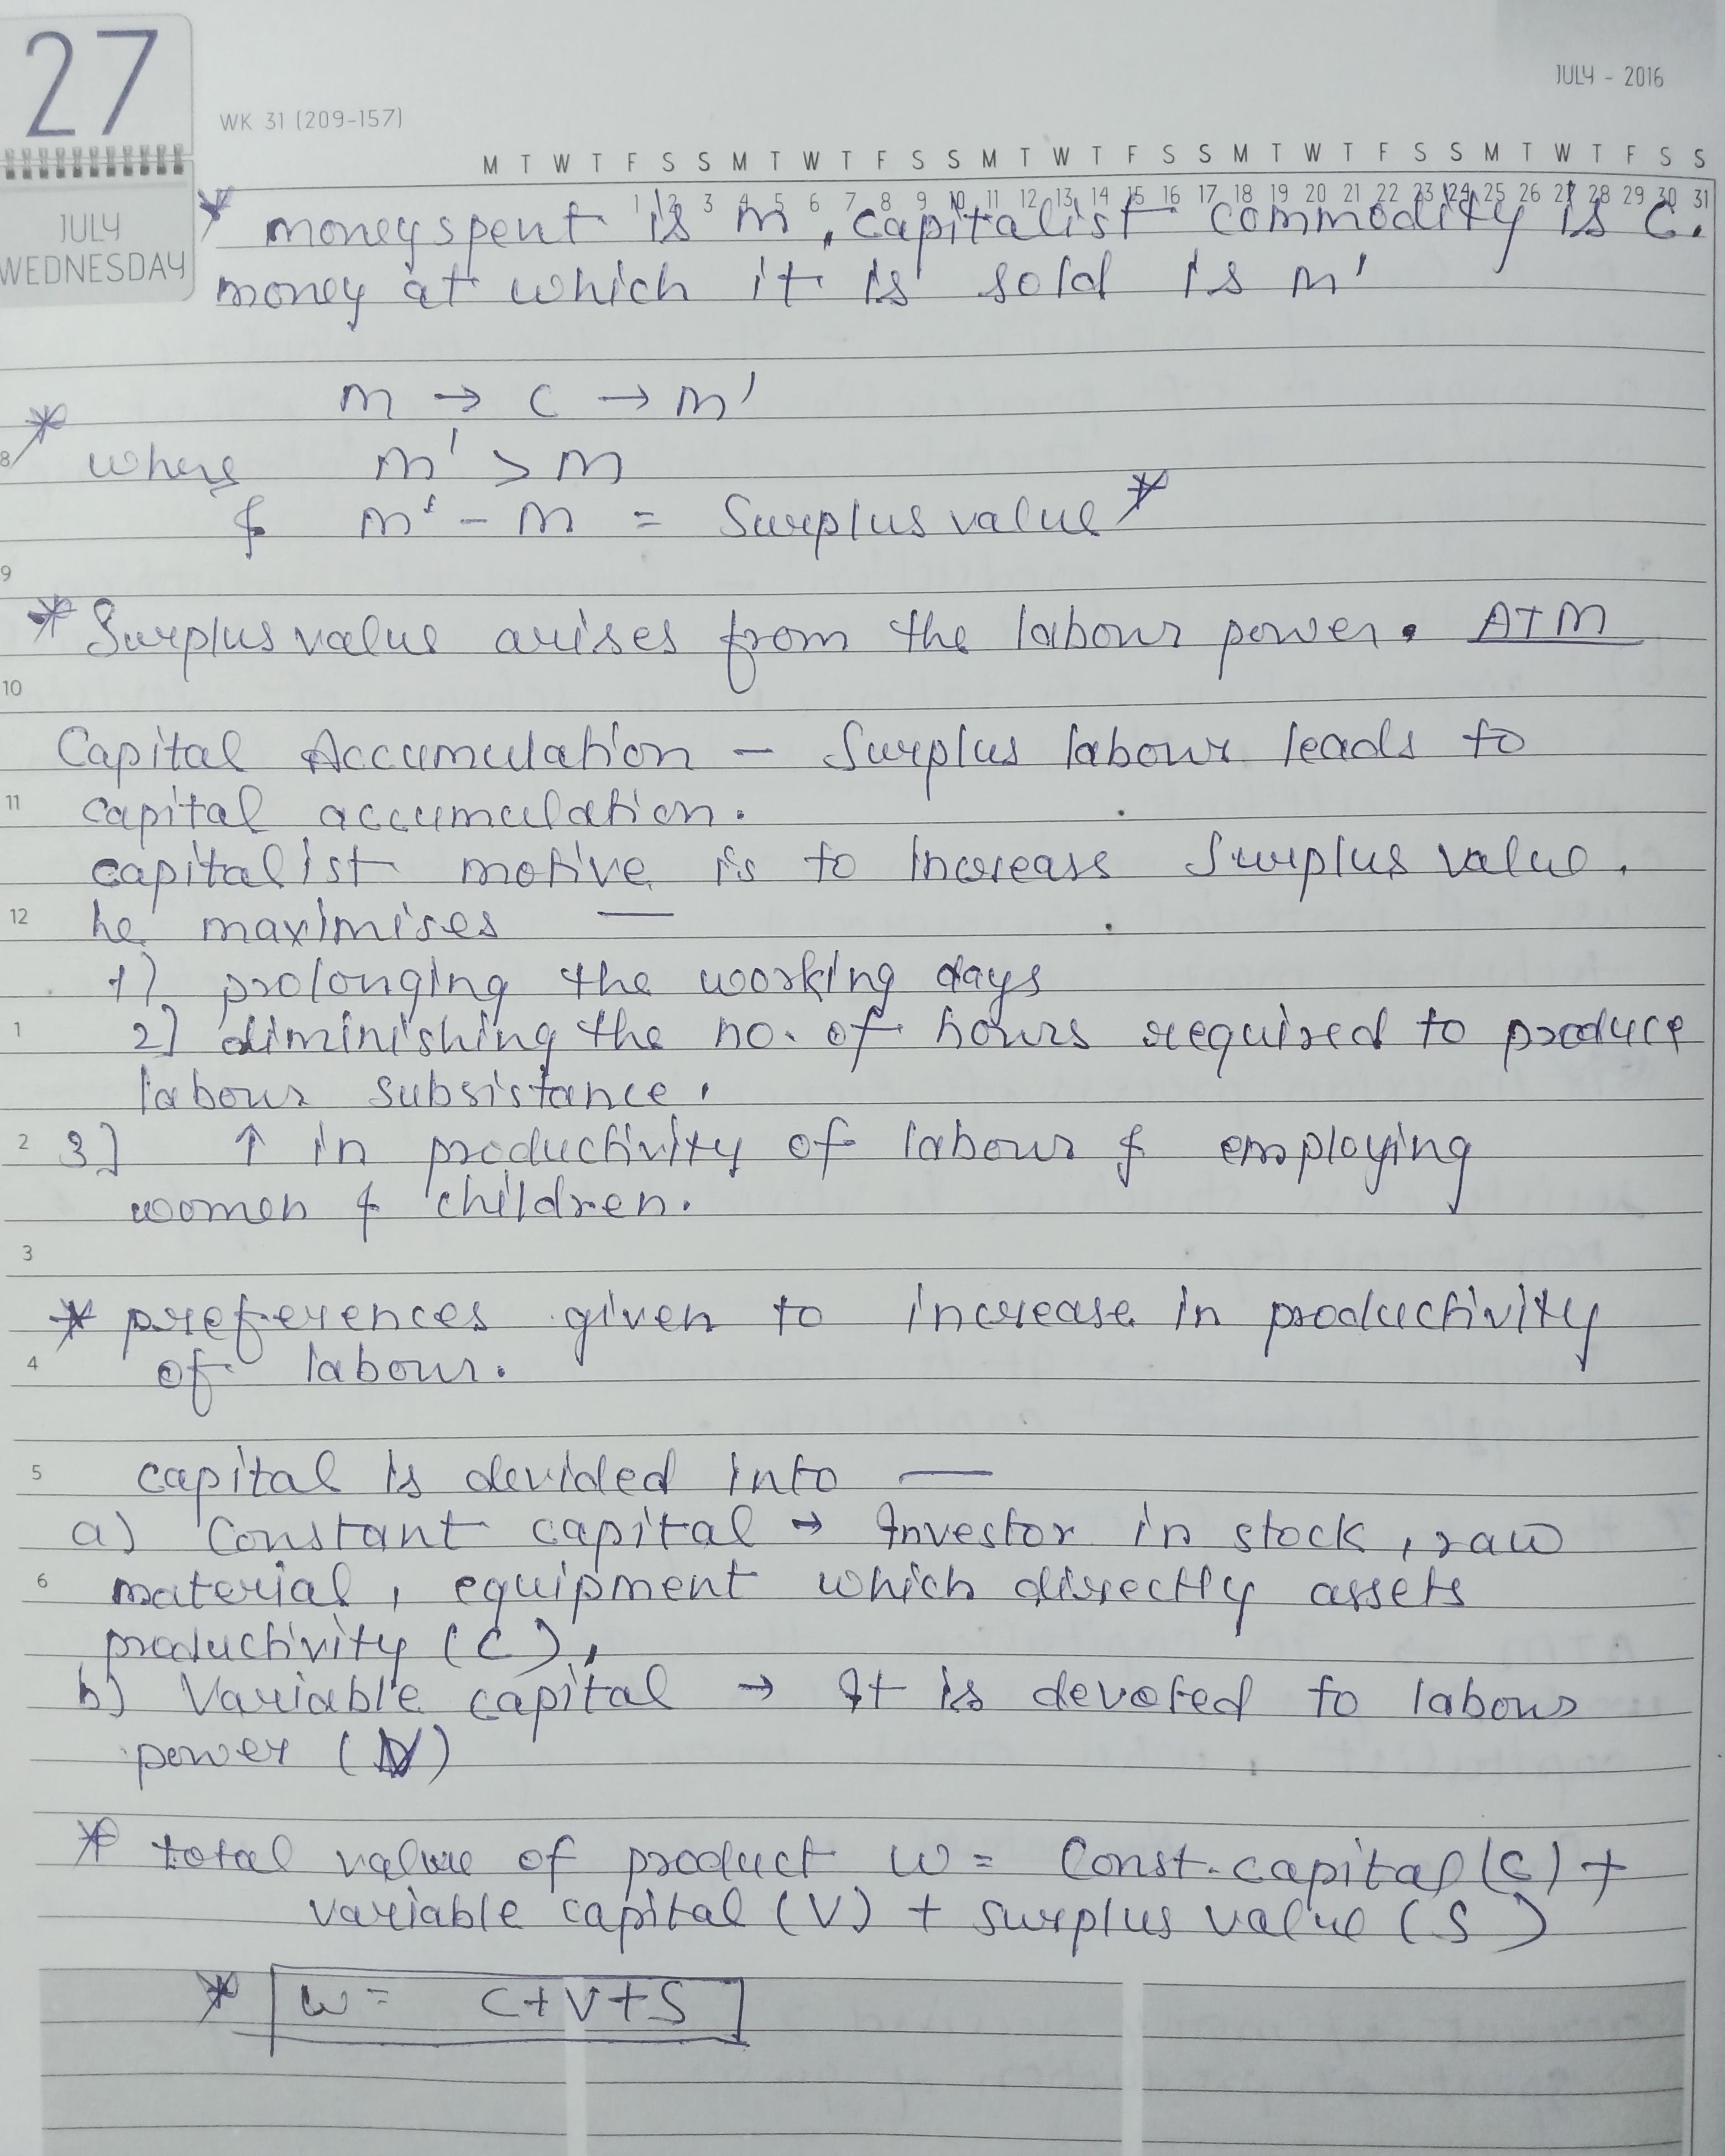 27
JULY - 2016
WK 31 (209-157)
M T W T F S S M T W T F S S M T W T F S S M T W T F S S M T W T F S S
1 2 3 4 5 6 7 8 9 10 11 12 13 14 15 16 17 18 19 20 21 22 23 24 25 26 27 28 29 30 31
JULY
WEDNESDAY
* money spent is m, capitalist commodity is C.
money at which it is sold is m'
m → c → m'
8 * where m' > m
& m' - m = Surplus value *
9
* Surplus value arises from the labour power. ATM
10
Capital Accumulation - Surplus labour leads to
11 capital accumulation.
capitalist motive is to increase Surplus value.
12 he maximises —
1) prolonging the working days
1 2] diminishing the no. of hours required to produce
labour subsistance.
2 3] ↑ in productivity of labour & employing
women & children.
3
* preferences given to increase in productivity
4 of labour.
5 capital is devided into —
a) Constant capital → Investor in stock, raw
6 material, equipment which directly assets
productivity (C),
b) Variable capital → It is devoted to labour
power (V)
* total value of product w = Const. capital (C) +
variable capital (V) + surplus value (S)
* w = C+V+S